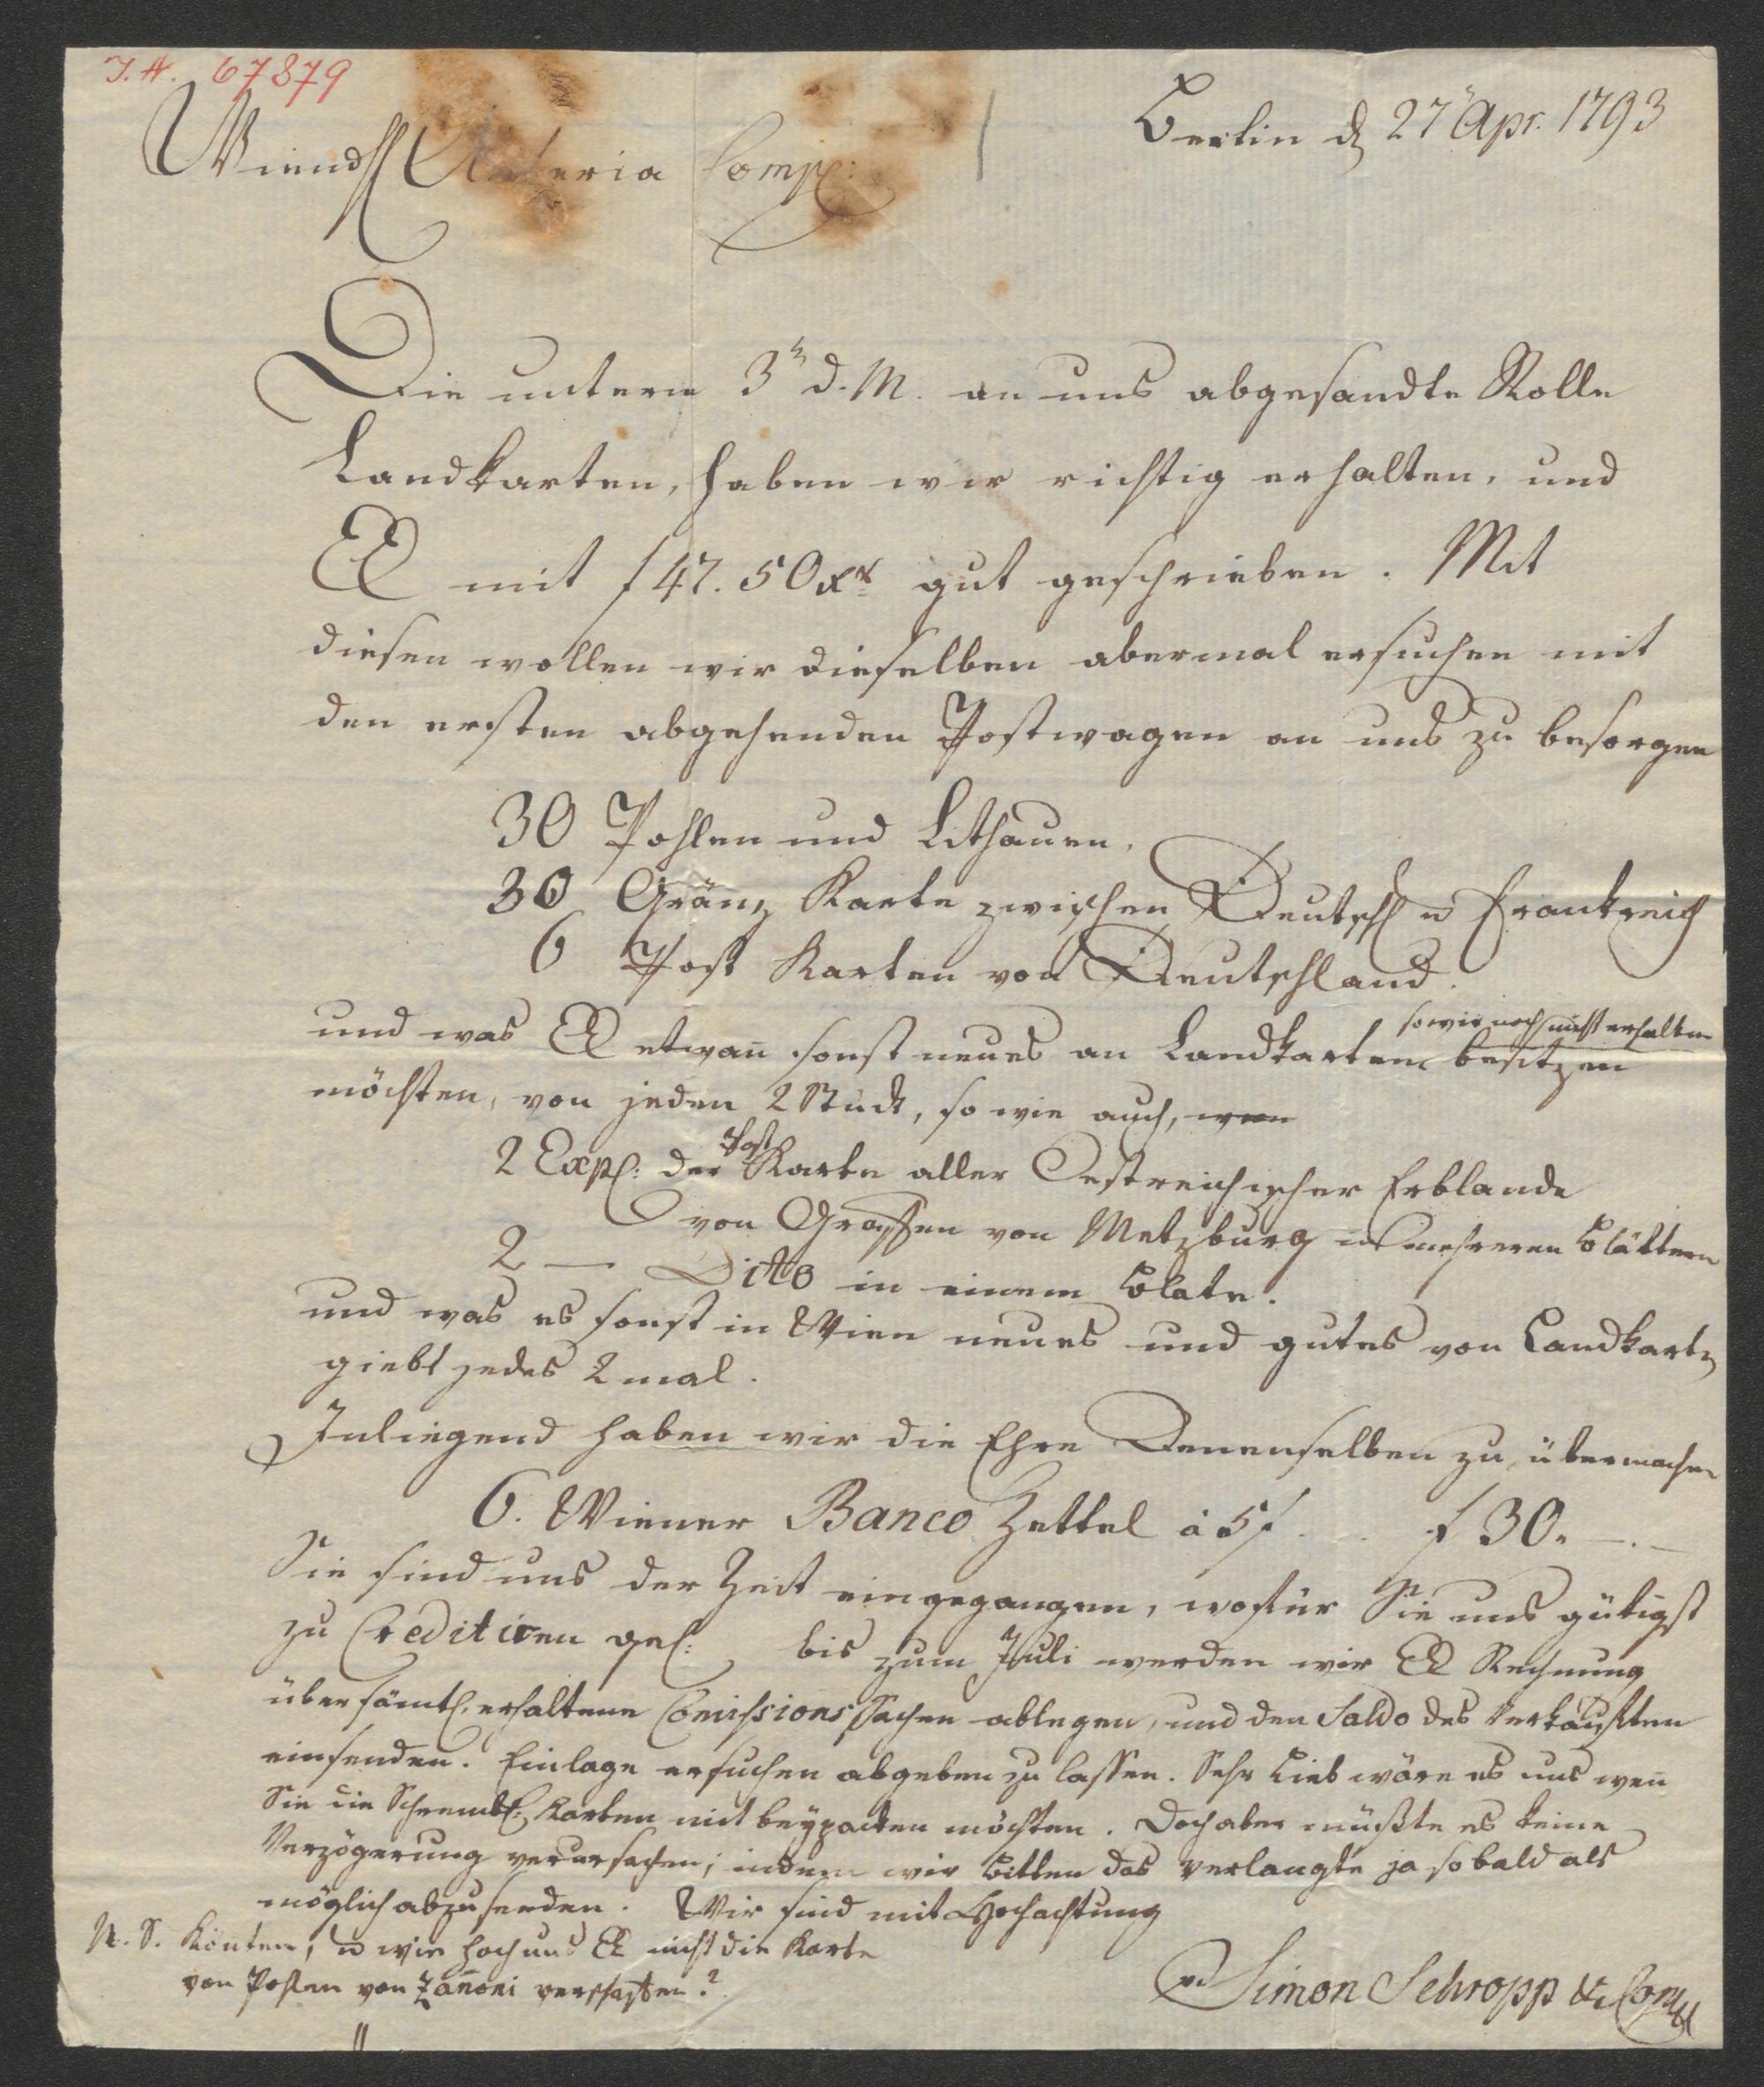 I. N. 67879
Berlin d 27 Apr. 1793
Wien H Artaria Comp:
Die unterm 3n d. M. an uns abgesandte Rolle
Landkarten, haben wir richtig erhalten, und
EE mit f 47. 50 xr gut geschrieben. Mit
diesen wollen wir dieselben abermal ersuchen mit
den ersten abgehenden Postwagen an uns zu besorgen
30 Pohlen und Lithauen.
30 Gränz Karte zwischen Deutschl u Frankreich
6 Post Karten von Deutschland.
so wir noch nicht erhalten
und was EE etwan̄ sonst neues an Landkarten besitzen
möchten, von jeden 2 Stück, so wie auch,
2 Expl: der Post Karte aller Oestreichischer Erblande
von Grossen von Metzburg in mehreren Blättern
2 — Dito in einem Blate.
und was es sonst in Wien neues und gutes von Landkarten
giebt jedes 2 mal.
Inliegend haben wir die Ehre Denenselben zu übermachen
6. Wiener Banco Zettel à 5 f . . f 30. —. —
Sie sind uns der Zeit eingegangen, wofür Sie uns gütigst
zu Creditiren gel: bis zum Juli werden wir EE Rechnung
über sämtl. erhaltene Com̄issions Sachen ablegen, und den Saldo des Verkauften
einsenden. Einlage ersuchen abgeben zu lassen. Sehr Lieb wäre es uns wen̄
Sie die Schraembl: Karten mit beypacken möchten. Doch aber müßte es keine
Verzögerung verursachen; indem wir bitten das verlangte ja so bald als
möglich abzusenden. Wir sind mit Hochachtung
N. S. Könten, u wie hoch uns EE nicht die Karte
von Pohlen von Zan̄oni verschaffen?
Simon Schropp & Comp